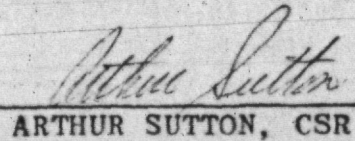 Arthur Sutton
ARTHUR SUTTON, CSR